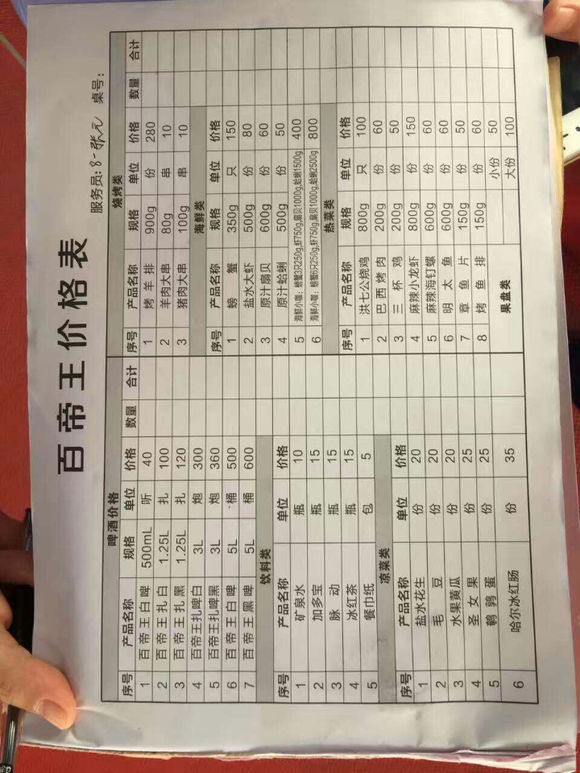 百帝王价格表
服务员: 8-张元 桌号:
啤酒价格
序号 产品名称 规格 单位 价格 数量 合计
1 百帝王白啤 500mL 听 40
2 百帝王扎白 1.25L 扎 100
3 百帝王扎黑 1.25L 扎 120
4 百帝王扎啤白 3L 炮 300
5 百帝王扎啤黑 3L 炮 360
6 百帝王白啤 5L 桶 500
7 百帝王黑啤 5L 桶 600
饮料类
序号 产品名称 单位 价格
1 矿泉水 瓶 10
2 加多宝 瓶 15
3 脉动 瓶 15
4 冰红茶 瓶 15
5 餐巾纸 包 5
凉菜类
序号 产品名称 单位 价格
1 盐水花生 份 20
2 毛豆 份 20
3 水果黄瓜 份 20
4 圣女果 份 25
5 鹌鹑蛋 份 25
6 哈尔冰红肠 份 35
烧烤类
序号 产品名称 规格 单位 价格 数量 合计
1 烤羊排 900g 份 280
2 羊肉大串 80g 串 10
3 猪肉大串 100g 串 10
海鲜类
序号 产品名称 规格 单位 价格
1 螃蟹 350g 只 150
2 盐水大虾 500g 份 80
3 原汁扇贝 600g 份 60
4 原汁蛤蜊 500g 份 50
5 海鲜小咖: 螃蟹3只250g,虾750g,扇贝1000g,蛤蜊1500g 400
6 海鲜小咖: 螃蟹6只250g,虾750g,扇贝1000g,蛤蜊2500g 800
热菜类
序号 产品名称 规格 单位 价格
1 洪七公烧鸡 800g 只 100
2 巴西烤肉 200g 份 60
3 三杯鸡 200g 份 50
4 麻辣小龙虾 800g 份 150
5 麻辣海钉螺 600g 份 60
6 明太鱼 600g 份 60
7 章鱼片 150g 份 50
8 烤鱼排 150g 份 60
果盘类 小份 50
大份 100